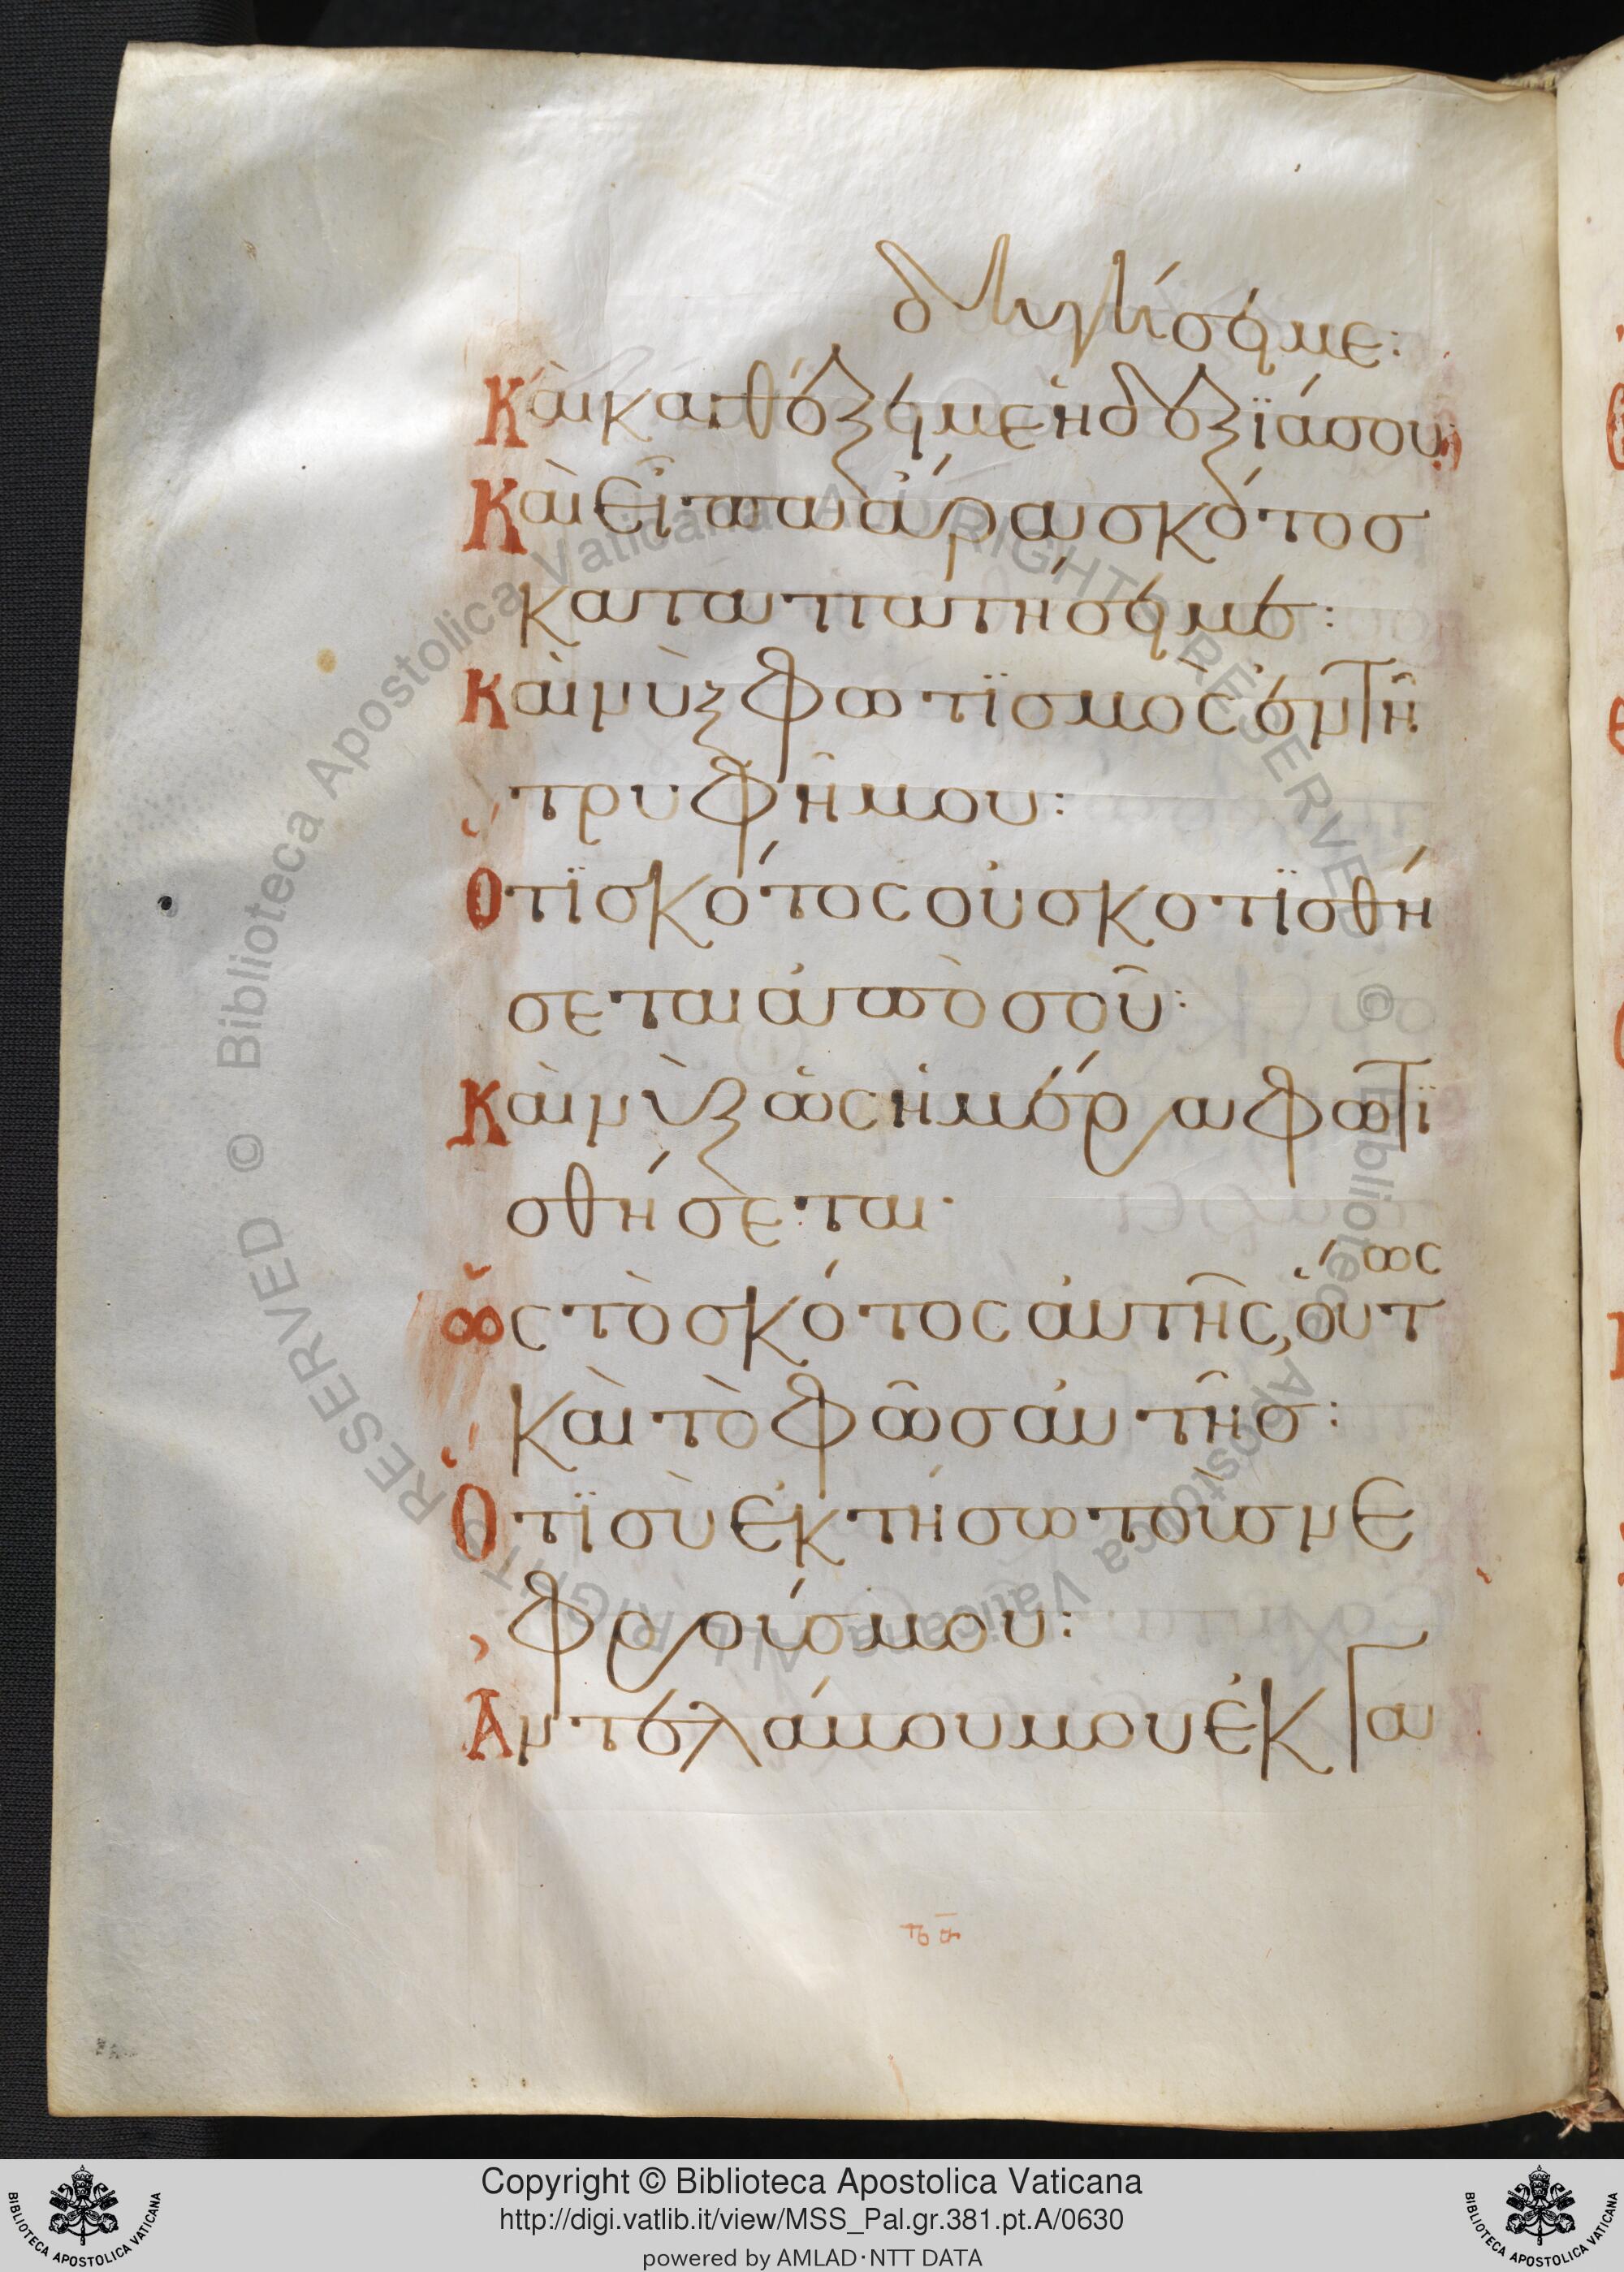 δηγήσει με:
Καὶ καθέξει με ἡ δεξϊά σου:
Καὶ εἶπα ἄρα σκότος
καταπατήσει με:
Καὶ νὺξ φωτϊσμος ἐν τῆ
τρυφῆ μου:
Ὅτϊ σκότος οὐ σκοτϊσθή
σεται ἀπὸ σοῦ:
Καὶ νὺξ ὡς ἡμέρα φωτϊ
σθήσεται·
Ὡς τὸ σκότος ἀυτῆς, ὅυτως
καὶ τὸ φῶς ἀυτῆς:
Ὅτϊ σὺ ἐκτήσω τοὺς νε
φρούς μου:
Ἀντελάβου μου ἐκ γα
Copyright © Biblioteca Apostolica Vaticana
http://digi.vatlib.it/view/MSS_Pal.gr.381.pt.A/0630
powered by AMLAD·NTT DATA
BIBLIOTECA APOSTOLICA VATICANA
BIBLIOTECA APOSTOLICA VATICANA
© Biblioteca Apostolica Vaticana ALL RIGHTS RESERVED © Biblioteca Apostolica Vaticana ALL RIGHTS RESERVED